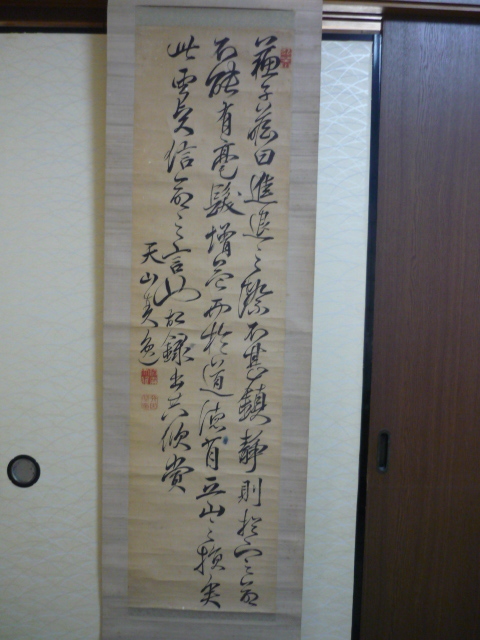 蘇子瞻曰進退之際不甚鎮静則於定命
不能有毫髮増益而於道徳有丘山之損矣
此真信命之言也故録出共欣賞
天山